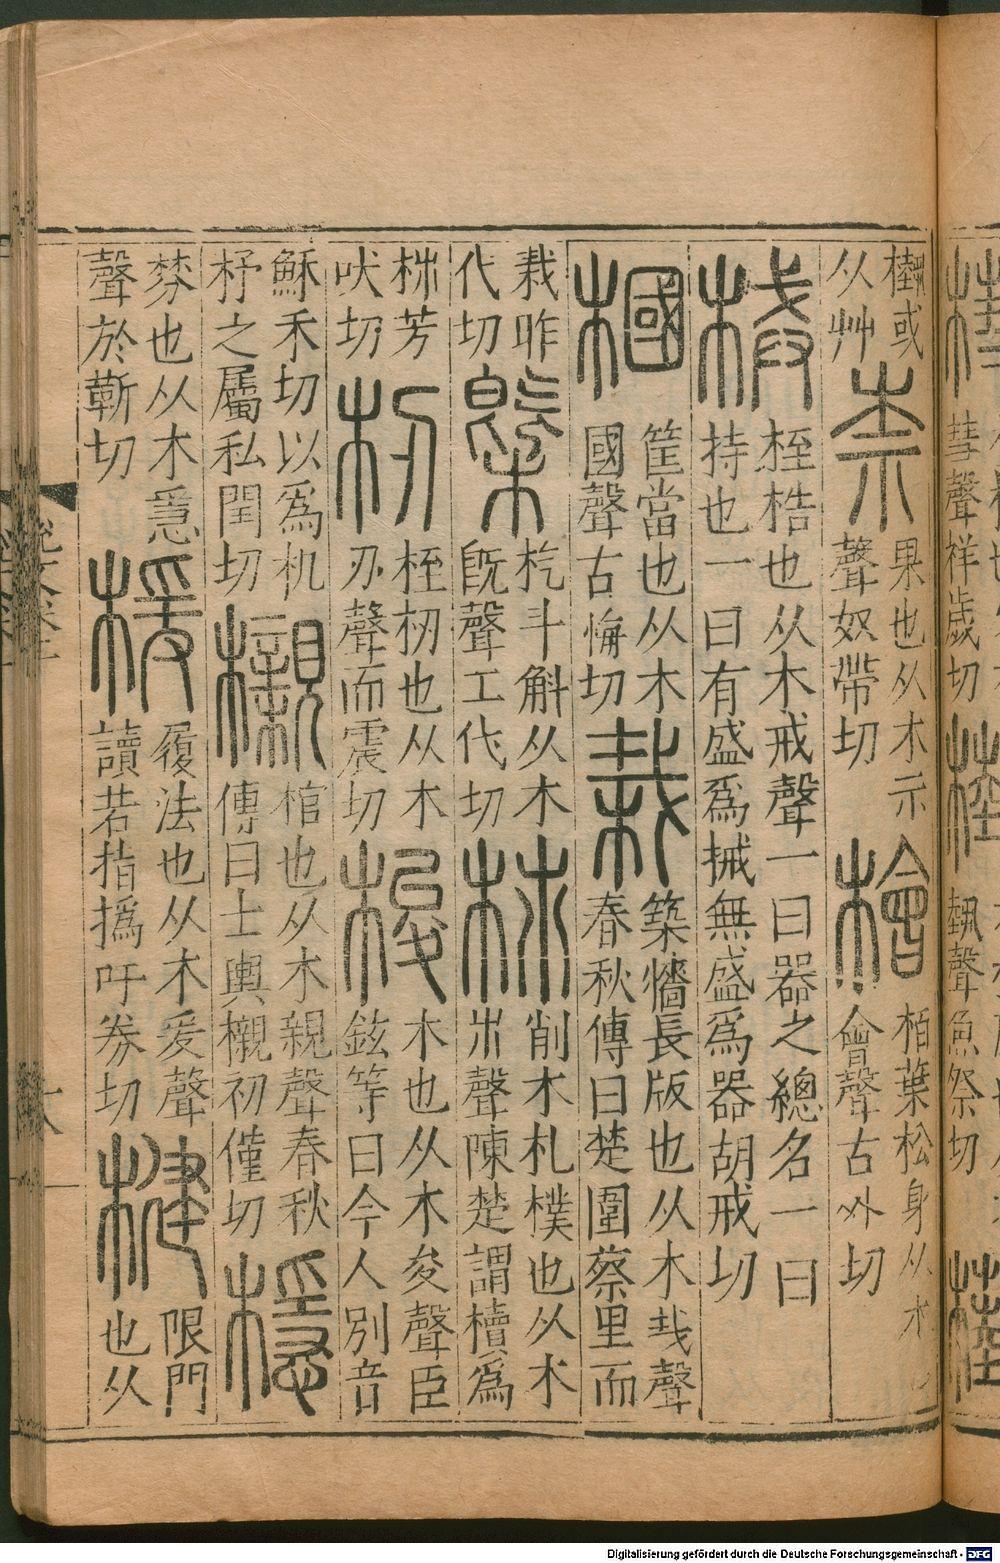 彗聲祥歲切
埶聲魚祭切
槸或
从艸
柰
果也从木示
聲奴帶切
檜
栢葉松身从木
會聲古外切
械
桎梏也从木戒聲一曰器之總名一曰
持也一曰有盛爲械無盛爲器胡戒切
槶
筐當也从木
國聲古悔切
栽
築牆長版也从木𢦏聲
春秋傳曰楚圍蔡里而
栽昨
代切
槩
杚斗斛从木
旣聲工代切
柹
削木札樸也从木
𣎵聲陳楚謂櫝爲
柹芳
吠切
杒
桎杒也从木
刃聲而震切
梭
木也从木夋聲臣
鉉等曰今人別音
穌禾切以爲机
杼之屬私閏切
櫬
棺也从木親聲春秋
傳曰士輿櫬初僅切
檼
棼也从木㥯
聲於靳切
楥
履法也从木爰聲
讀若指撝吁券切
楗
限門
也从
Digitalisierung gefördert durch die Deutsche Forschungsgemeinschaft - DFG